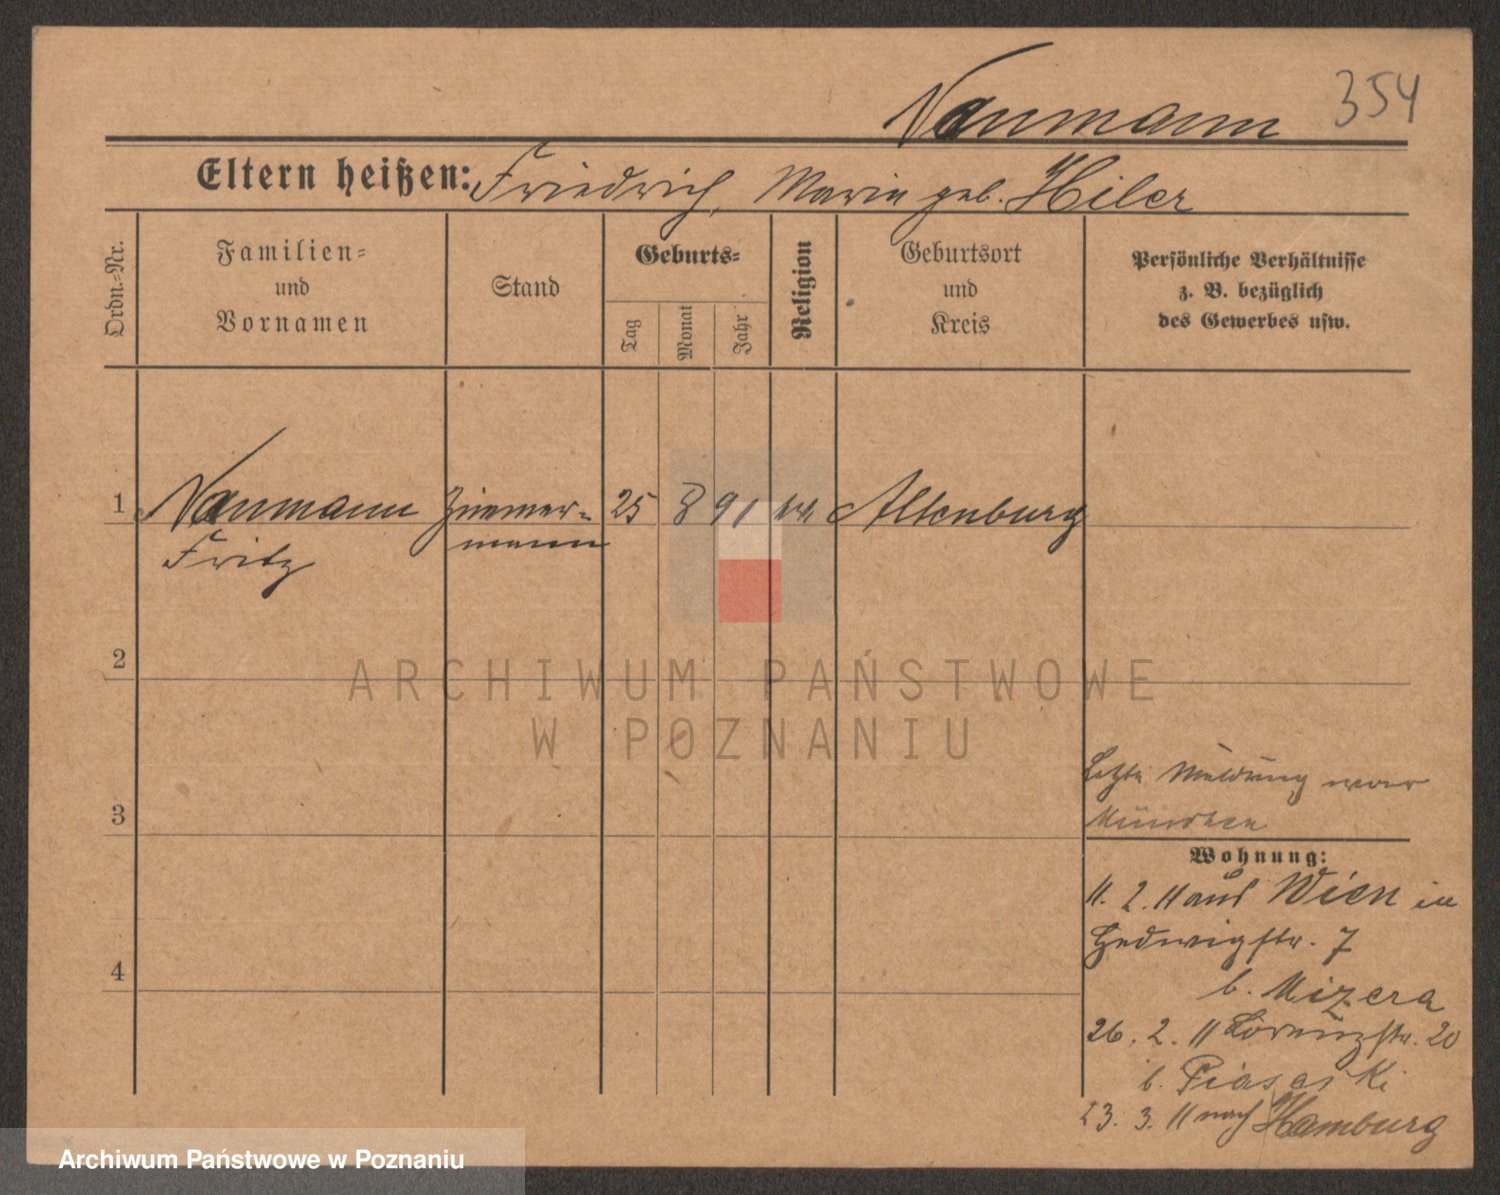 Naumann 354
Eltern heißen: Friedrich, Marie geb. Hiler
Ordn.-Nr.
Familien-
und
Vornamen
Stand
Geburts-
Tag
Monat
Jahr
Religion
Geburtsort
und
Kreis
Persönliche Verhältnisse
z. B. bezüglich
des Gewerbes usw.
1 Naumann Zimmer- 25 8 91 Altenburg
Fritz mann
2
ARCHIWUM PAŃSTWOWE
W POZNANIU
Letzte Meldung war
München
3
Wohnung:
11. 2. 11 aus Wien in
Hedwigstr. 7
b. Mizera
4
26. 2. 11 Lorenzstr. 20
b. Piasecki
23. 3. 11 nach Hamburg
Archiwum Państwowe w Poznaniu